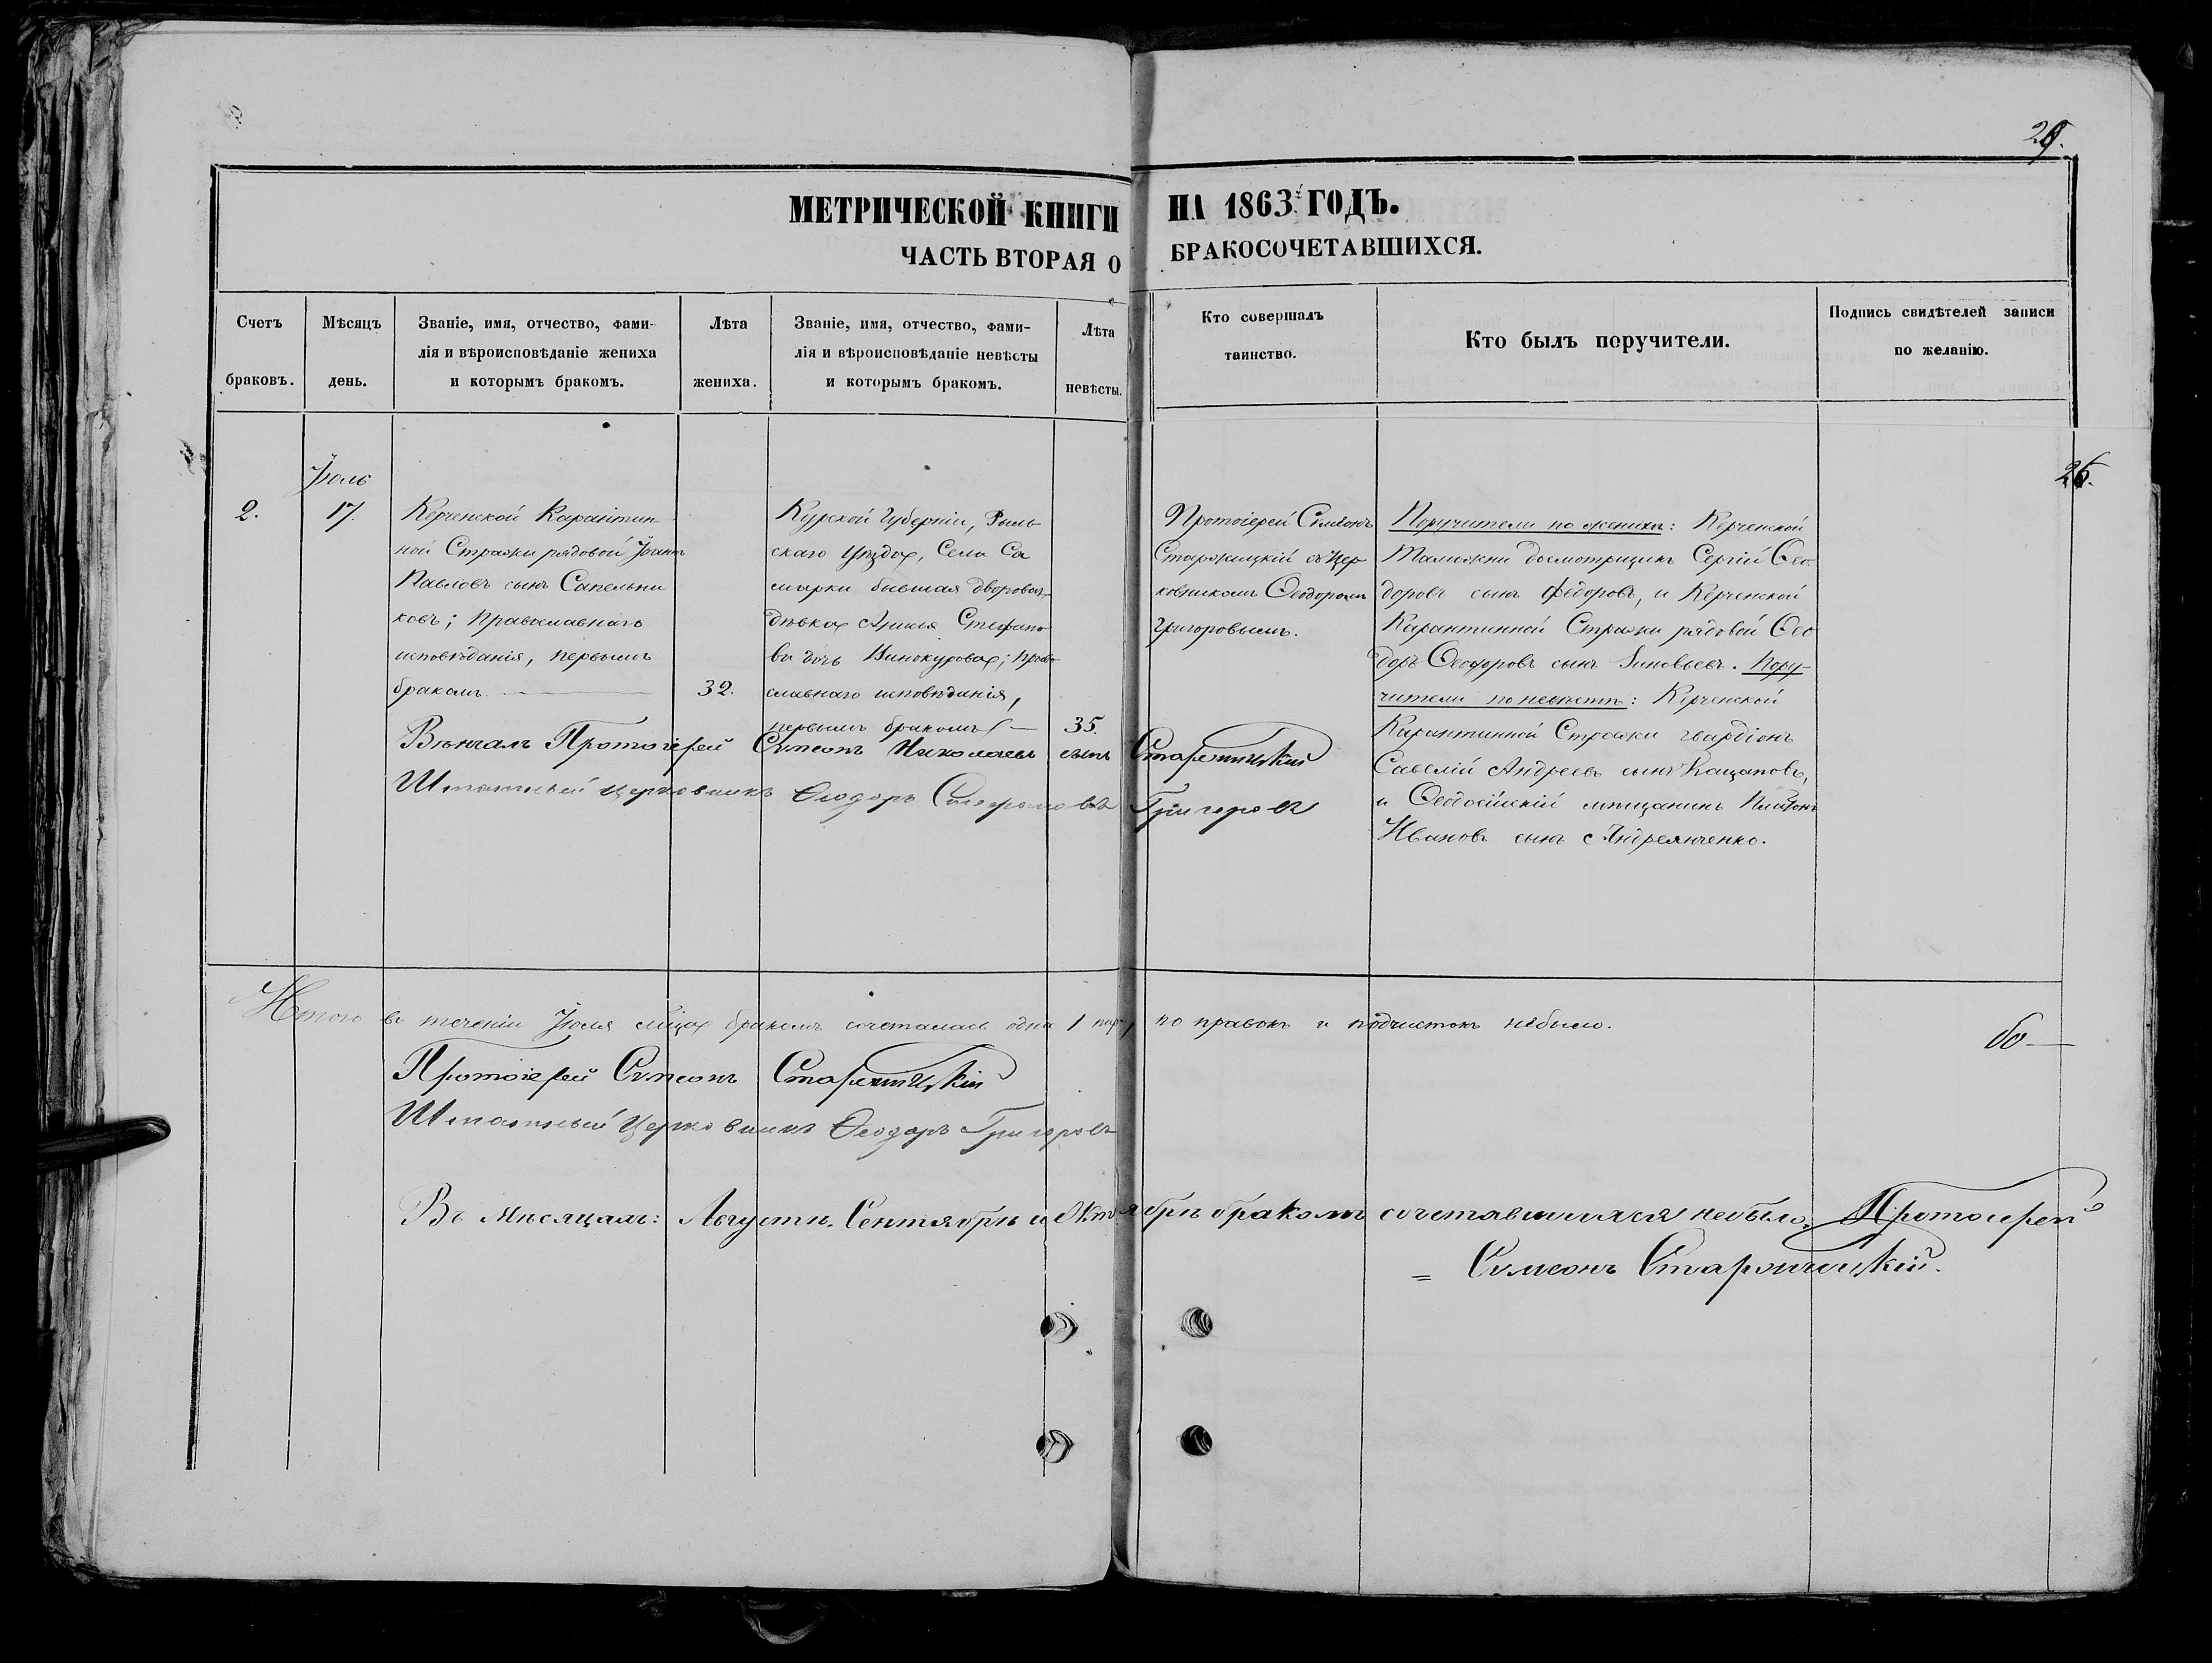 29.
МЕТРИЧЕСКОЙ КНИГИ НА 1863 ГОДЪ.
ЧАСТЬ ВТОРАЯ О БРАКОСОЧЕТАВШИХСЯ.
Счетъ браковъ.
Мѣсяцъ день.
Званіе, имя, отчество, фами-
лія и вѣроисповѣданіе жениха
и которымъ бракомъ.
Лѣта жениха.
Званіе, имя, отчество, фами-
лія и вѣроисповѣданіе невѣсты
и которымъ бракомъ.
Лѣта невѣсты.
Кто совершалъ
таинство.
Кто былъ поручители.
Подпись свидѣтелей записи
по желанію.
26.
2.
Іюль
17.
Керченской Карантин
ной Стражи рядовой Іоаннъ
Павловъ сынъ Сапельни
ковъ; Православнаго
исповѣданія, первымъ
бракомъ.
32.
Курской Губерніи, Рыль
скаго Уѣзда, Села Са
мырки бывшая дворовая
дѣвка Стефано
ва дочь Винокурова; право
славнаго исповѣданія,
первымъ бракомъ
35.
Протоіерей Симеонъ
Старжицкій съ Цер
ковникомъ Ѳеодоромъ
Григоровымъ.
Поручители по женихѣ: Керченской
Таможни досмотрщикъ Сергій Ѳео
доровъ сынъ Федоровъ, и Керченской
Карантинной Стражи рядовой Ѳео
доръ Ѳеодоровъ сынъ Зиновьевъ. Пору-
чители по невѣстѣ: Керченской
Карантинной Стражи гвардіонъ
Савелій Андреевъ сынъ Кацаповъ,
и Ѳеодосійскій мѣщанинъ Платонъ
Ивановъ сынъ Андреянченко.
Вѣнчалъ Протоіерей Симеонъ Николаевъ сынъ
Штатный Церковникъ Ѳеодоръ Григоровъ
Итого въ теченіи Іюля мѣсяца бракомъ сочеталась одна 1 пара, поправокъ и подчистокъ небыло.
60
Протоіерей Симеонъ
Штатный Церковникъ Ѳеодоръ Григоровъ
Въ мѣсяцахъ: Августѣ, Сентябрѣ и Октябрѣ бракомъ сочетавшихся небыло. Протоіерей
= Симеонъ